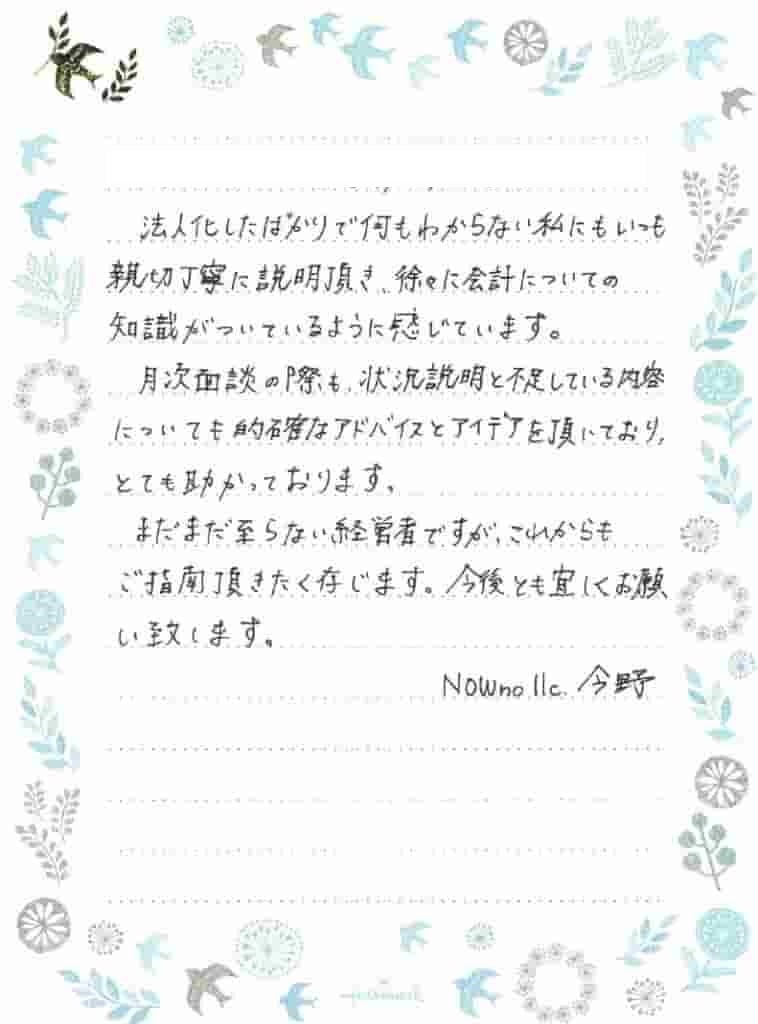 法人化したばかりで何もわからない私にもいつも
親切丁寧に説明頂き、徐々に会計についての
知識がついているように感じています。
月次面談の際も、状況説明と不足している内容
についても的確なアドバイスとアイデアを頂いており、
とても助かっております。
まだまだ至らない経営者ですが、これからも
ご指南頂きたく存じます。今後とも宜しくお願
い致します。
NOWno llc. 今野